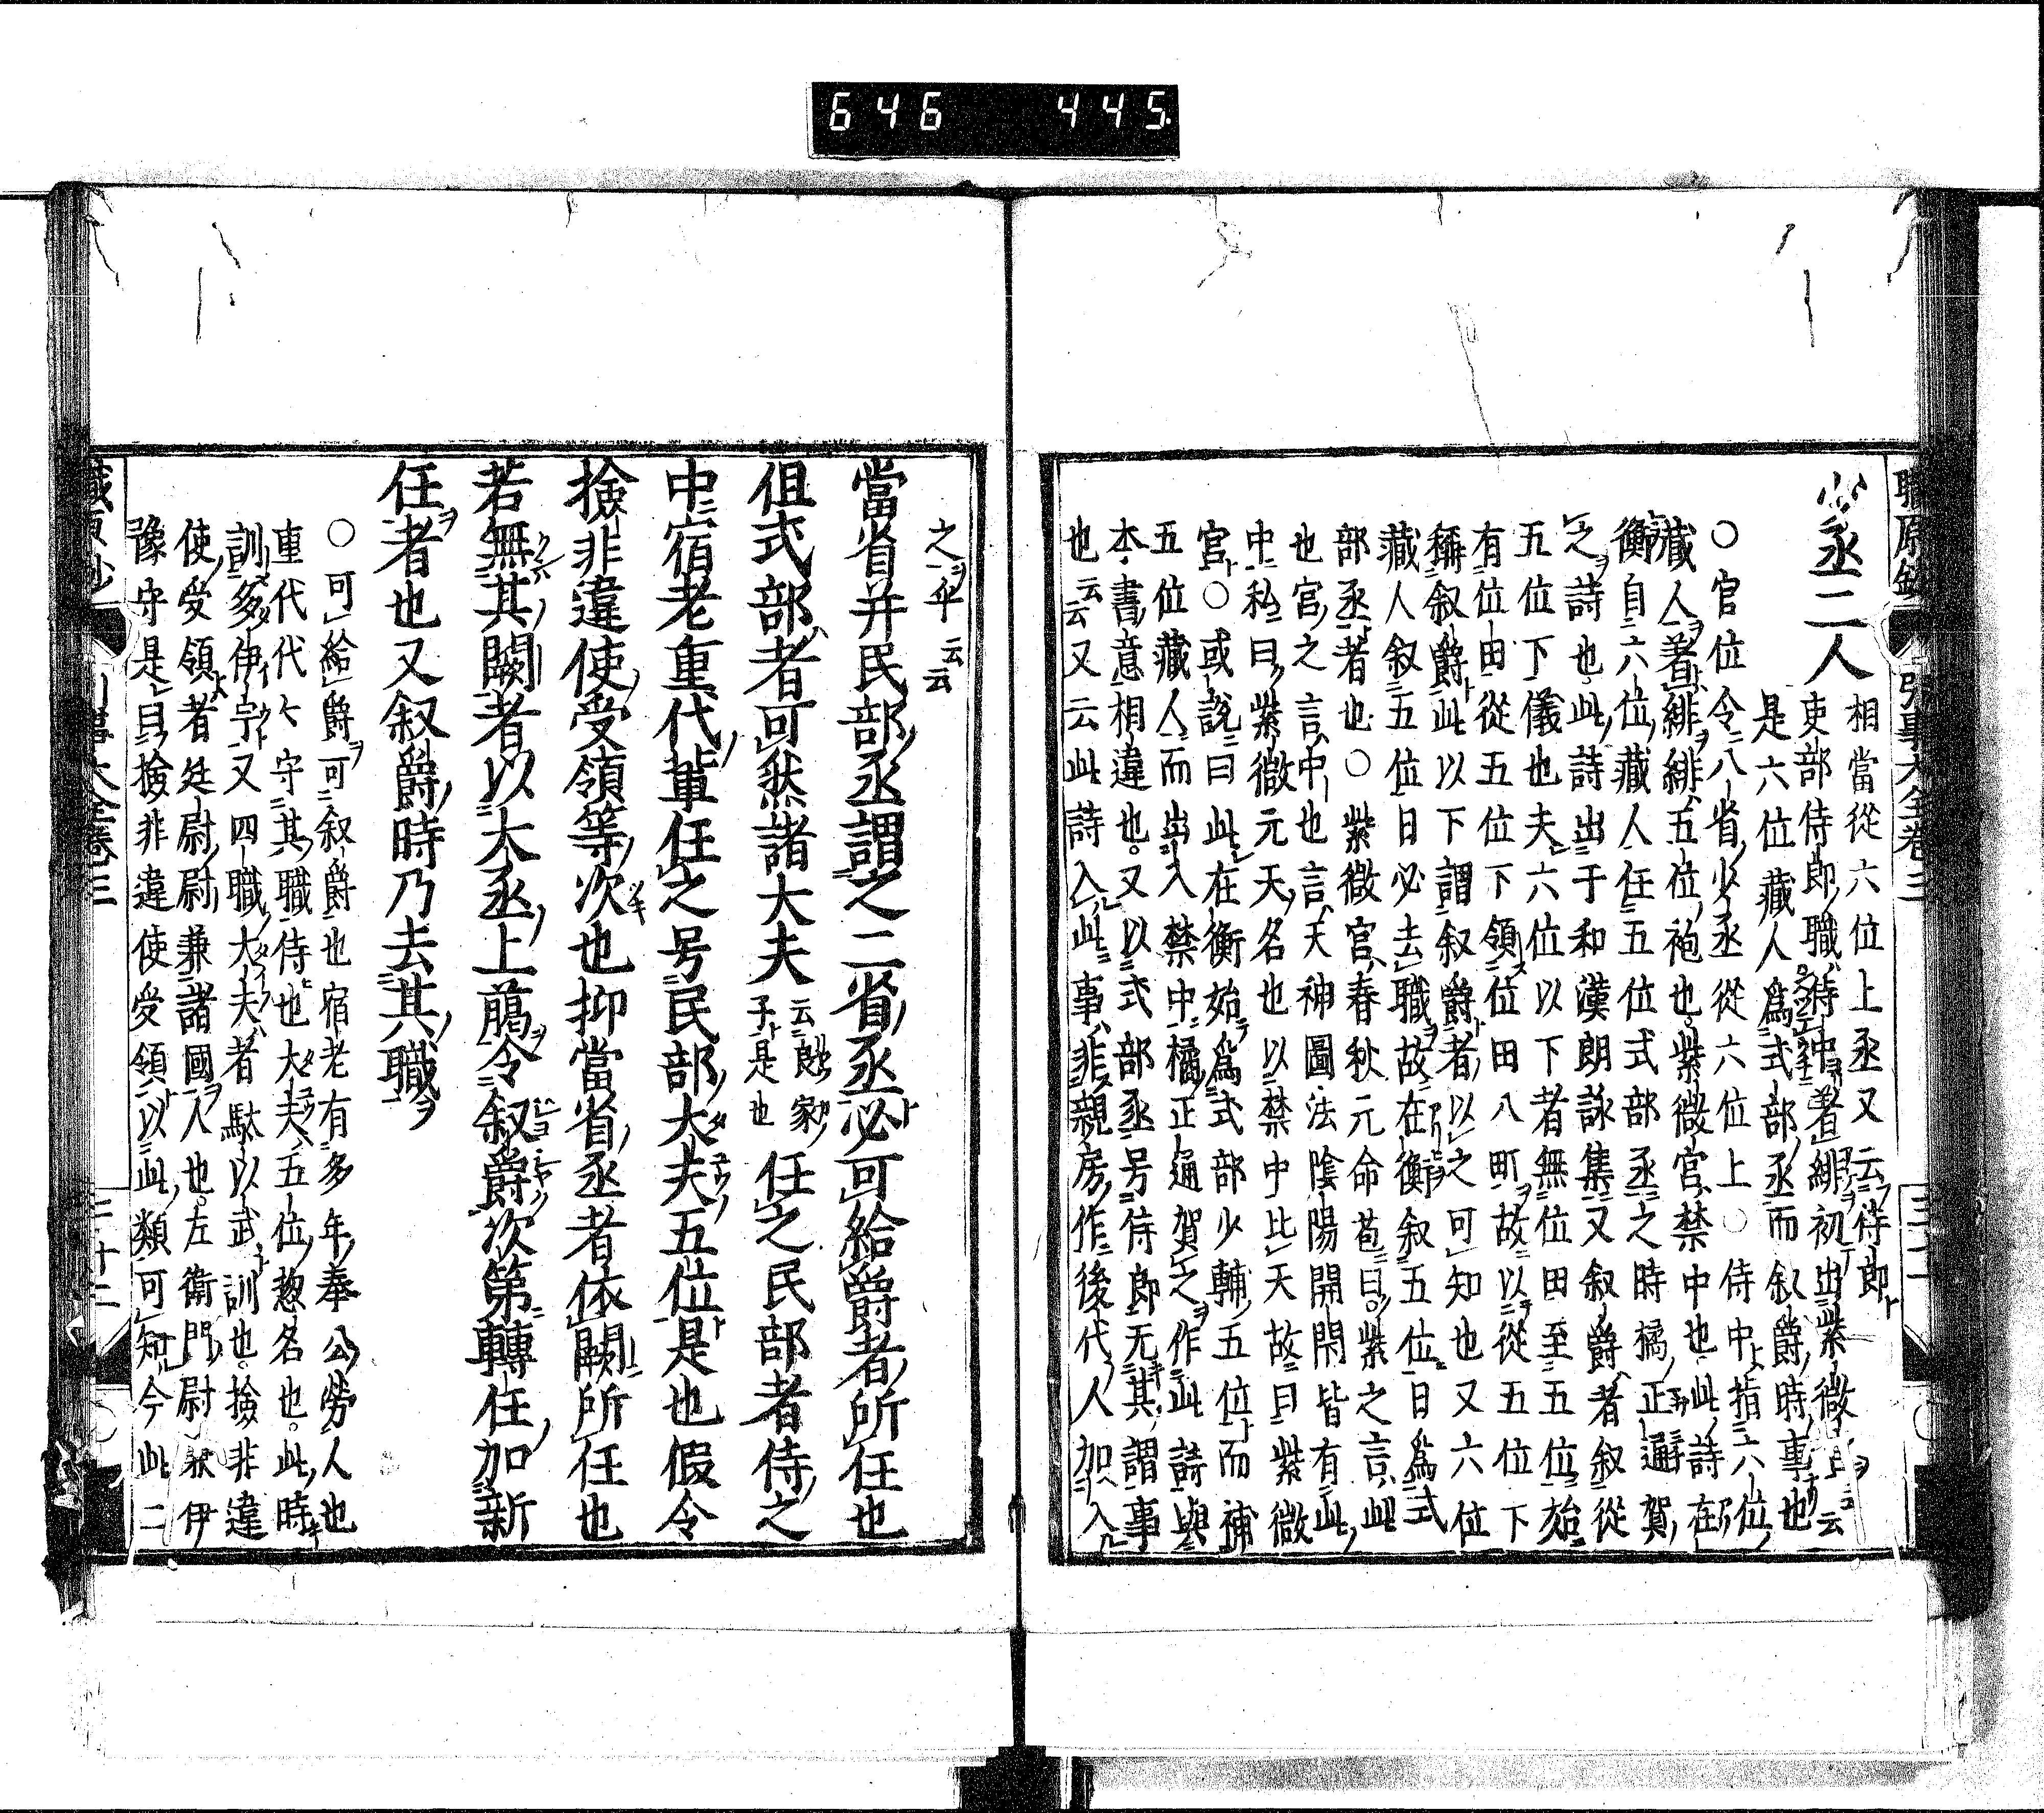 646 445
少丞二人 相當從六位上丞又云侍郎
吏部侍郎職侍中著緋初出紫微 云
是六位藏人為式部丞而叙爵時事也
○官位令八省少丞從六位上○侍中指六位
藏人著緋緋五位袍也紫微官禁中也此詩在
衡自六位藏人任五位式部丞之時橘正通賀
之詩也此詩出于和漢朗詠集又叙爵者叙從
五位下儀也夫六位以下者無位田至五位始
有位由從五位下領位田八町故以從五位下
稱叙爵此以下謂叙爵者以之可知也又六位
藏人叙五位日必去職故在衡叙五位日為式
部丞者也○紫微官春秋元命苞曰紫之言此
也宮之言中也言天神圖法陰陽開閉皆有此
中私曰紫微元天名也以禁中比天故曰紫微
宮○或說曰此在衡始為式部少輔五位而補
五位藏人而出入禁中橘正通賀之作此詩與
本書意相違也又以式部丞号侍郎无其謂事
也云云又云此詩入此事非親房作後代人加入
之乎云云
當省并民部丞謂之二省丞必可給爵者所任也
但式部者可然諸大夫 云良家子是也 任之民部者侍之
中宿老重代輩任之号民部大夫五位是也假令
撿非違使受領等次也抑當省丞者依闕所任也
若無其闕者以大丞上﨟令叙爵次第轉任加新
任者也又叙爵時乃去其職
○可給爵可叙爵也宿老有多年奉公勞人也
重代代々守其職侍也大夫五位惣名也此時
訓多伊宇又四職大夫者駄以武訓也撿非違
使受領者廷尉尉兼諸國人也左衛門尉 伊
豫守是自撿非違使受領以此類可知今此二